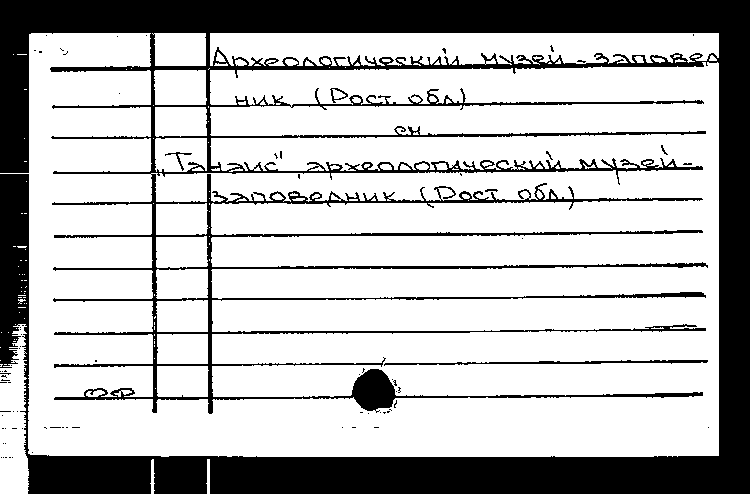 Археологический музей-заповед
ник (Рост. обл.)
см.
„Танаис", археологический музей-
заповедник (Рост. обл.)